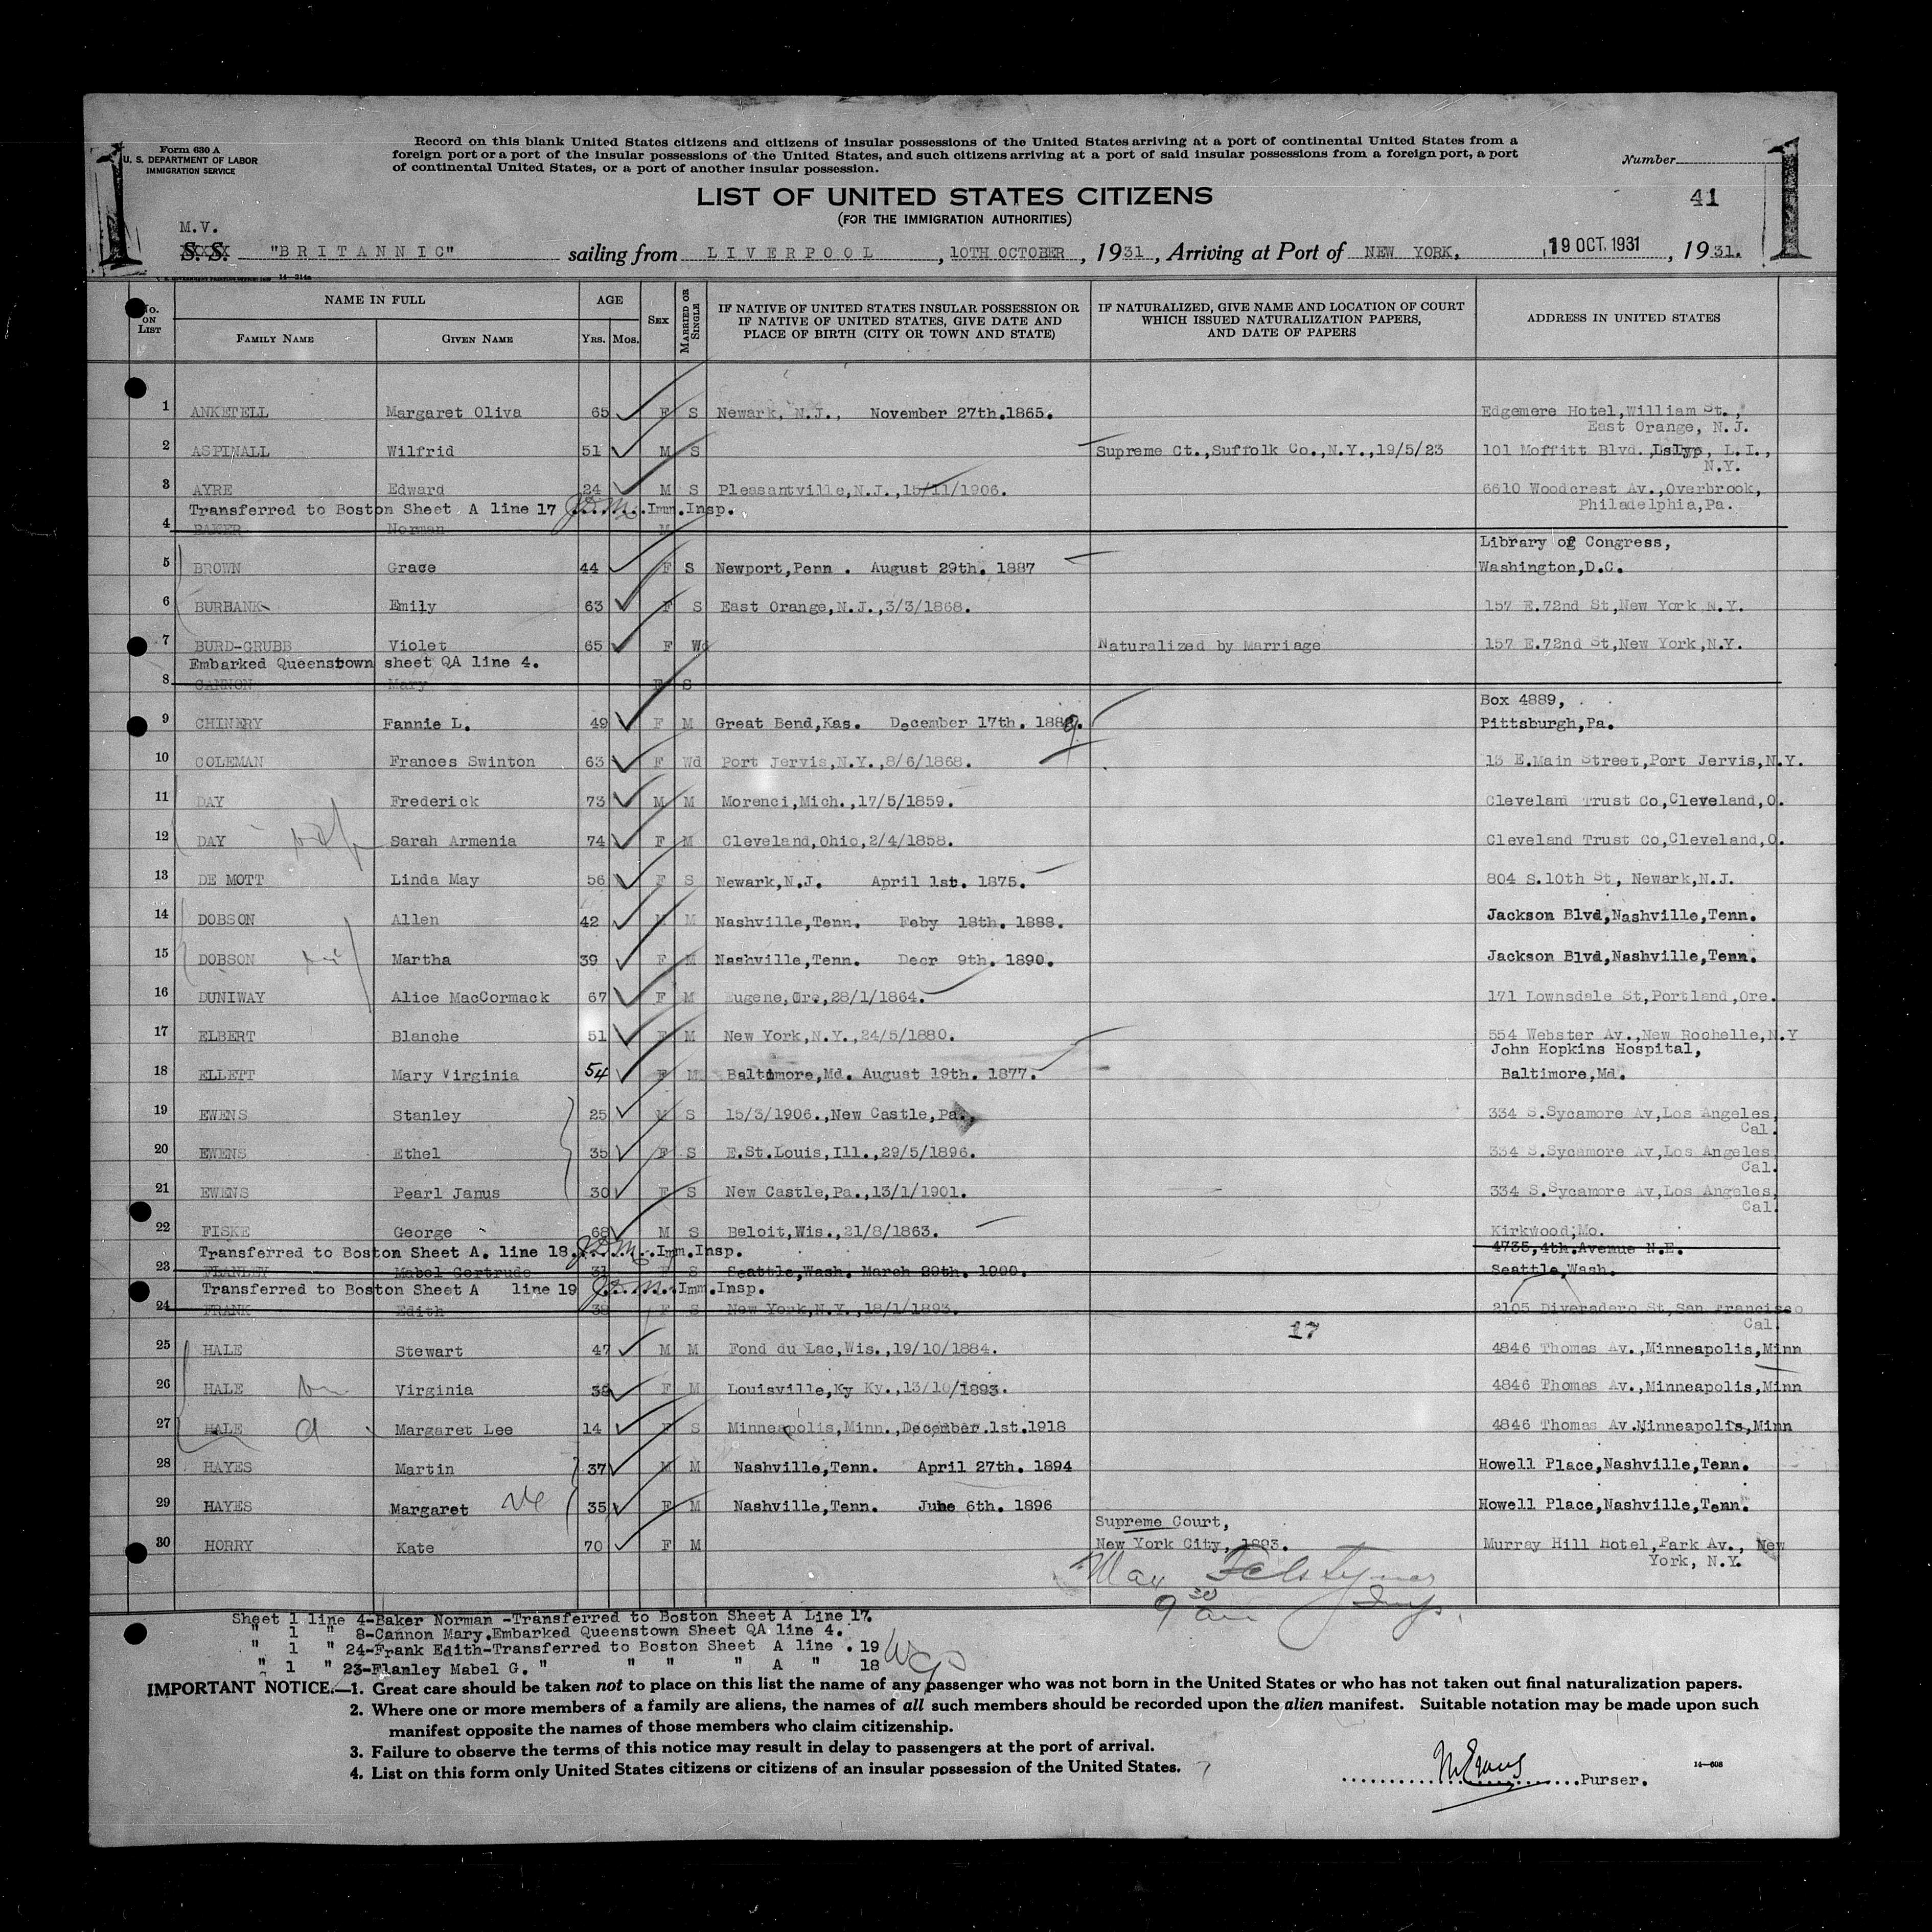 Form 630 A
U. S. DEPARTMENT OF LABOR
IMMIGRATION SERVICE
Record on this blank United States citizens and citizens of insular possessions of the United States arriving at a port of continental United States from a
foreign port or a port of the insular possessions of the United States, and such citizens arriving at a port of said insular possessions from a foreign port, a port
of continental United States, or a port of another insular possession.
Number
1
1
LIST OF UNITED STATES CITIZENS
(FOR THE IMMIGRATION AUTHORITIES)
41
M.V.
S. S. "BRITANNIC" sailing from LIVERPOOL, 10TH OCTOBER, 1931, Arriving at Port of NEW YORK, 19 OCT. 1931, 1931.
No. ON LIST
NAME IN FULL
FAMILY NAME GIVEN NAME
AGE
YRS. MOS.
SEX
MARRIED OR SINGLE
IF NATIVE OF UNITED STATES INSULAR POSSESSION OR
IF NATIVE OF UNITED STATES, GIVE DATE AND
PLACE OF BIRTH (CITY OR TOWN AND STATE)
IF NATURALIZED, GIVE NAME AND LOCATION OF COURT
WHICH ISSUED NATURALIZATION PAPERS,
AND DATE OF PAPERS
ADDRESS IN UNITED STATES
1 ANKETELL Margaret Oliva 65 F S Newark, N.J., November 27th.1865. Edgemere Hotel,William St.,
East Orange, N.J.
2 ASPINALL Wilfrid 51 M S Supreme Ct.,Suffolk Co.,N.Y.,19/5/23 101 Moffitt Blvd. , L.I.,
N.Y.
3 AYRE Edward 24 M S Pleasantville,N.J.,15/11/1906. 6610 Woodcrest Av.,Overbrook,
Philadelphia,Pa.
Transferred to Boston Sheet A line 17 Imm.Insp.
4 BAKER Norman M
Library of Congress,
5 BROWN Grace 44 F S Newport,Penn . August 29th. 1887 Washington,D.C.
6 BURBANK Emily 63 F S East Orange,N.J.,3/3/1868. 157 E.72nd St,New York N.Y.
7 BURD-GRUBB Violet 65 F Wd Naturalized by Marriage 157 E.72nd St,New York,N.Y.
Embarked Queenstown sheet QA line 4.
8 CANNON Mary F S
Box 4889,
9 CHINERY Fannie L. 49 F M Great Bend,Kas. December 17th. 188 Pittsburgh,Pa.
10 COLEMAN Frances Swinton 63 F Wd Port Jervis,N.Y.,8/6/1868. 13 E.Main Street,Port Jervis,N.Y.
11 DAY Frederick 73 M M Morenci,Mich.,17/5/1859. Cleveland Trust Co,Cleveland,O.
12 DAY Sarah Armenia 74 F M Cleveland,Ohio,2/4/1858. Cleveland Trust Co,Cleveland,O.
13 DE MOTT Linda May 56 F S Newark,N.J. April 1st. 1875. 804 S.10th St, Newark,N.J.
14 DOBSON Allen 42 M M Nashville,Tenn. Feby 18th. 1888. Jackson Blvd,Nashville,Tenn.
15 DOBSON Martha 39 F M Nashville,Tenn. Decr 9th. 1890. Jackson Blvd,Nashville,Tenn.
16 DUNIWAY Alice MacCormack 67 F M Eugene,Ore,28/1/1864. 171 Lownsdale St,Portland,Ore.
17 ELBERT Blanche 51 F M New York,N.Y.,24/5/1880. 554 Webster Av.,New Rochelle,N.Y
John Hopkins Hospital,
18 ELLETT Mary Virginia 54 F M Baltimore,Md. August 19th. 1877. Baltimore,Md.
19 EWENS Stanley 25 M S 15/3/1906.,New Castle,Pa., 334 S.Sycamore Av,Los Angeles,
Cal.
20 EWENS Ethel 35 F S E.St.Louis,Ill.,29/5/1896. 334 S.Sycamore Av,Los Angeles,
Cal.
21 EWENS Pearl Janus 30 F S New Castle,Pa.,13/1/1901. 334 S.Sycamore Av,Los Angeles,
Cal.
22 FISKE George 68 M S Beloit,Wis.,21/8/1863. Kirkwood;Mo.
Transferred to Boston Sheet A. line 18. Imm.Insp. 4735,4th.Avenue N.E.
23 FLANLEY Mabel Gertrude 31 F S Seattle,Wash. March 29th. 1900. Seattle,Wash.
Transferred to Boston Sheet A line 19 Imm.Insp.
24 FRANK Edith 38 F S New York,N.Y.,18/1/1893. 2105 Diversadero St,San Francisco
Cal.
17
25 HALE Stewart 47 M M Fond du Lac,Wis.,19/10/1884. 4846 Thomas Av.,Minneapolis,Minn
26 HALE Virginia 38 F M Louisville,Ky Ky.,13/10/1893. 4846 Thomas Av.,Minneapolis,Minn
27 HALE Margaret Lee 14 F S Minneapolis,Minn.,December.1st.1918 4846 Thomas Av.Minneapolis,Minn
28 HAYES Martin 37 M M Nashville,Tenn. April 27th. 1894 Howell Place,Nashville,Tenn.
29 HAYES Margaret 35 F M Nashville,Tenn. June 6th. 1896 Howell Place,Nashville,Tenn.
Supreme Court,
30 HORRY Kate 70 F M New York City, 1893. Murray Hill Hotel,Park Av., New
York, N.Y.
Max
9 30 am Insp.
Sheet 1 line 4-Baker Norman -Transferred to Boston Sheet A Line 17.
" 1 " 8-Cannon Mary.Embarked Queenstown Sheet QA line 4.
" 1 " 24-Frank Edith-Transferred to Boston Sheet A line . 19
" 1 " 23-Flanley Mabel G. " " " " A " 18
IMPORTANT NOTICE.—1. Great care should be taken not to place on this list the name of any passenger who was not born in the United States or who has not taken out final naturalization papers.
2. Where one or more members of a family are aliens, the names of all such members should be recorded upon the alien manifest. Suitable notation may be made upon such
manifest opposite the names of those members who claim citizenship.
3. Failure to observe the terms of this notice may result in delay to passengers at the port of arrival.
4. List on this form only United States citizens or citizens of an insular possession of the United States.
Purser.
14—608